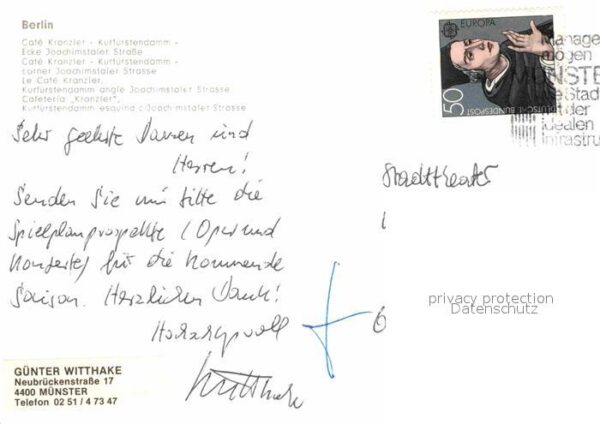 Berlin
Café Kranzler - Kurfürstendamm -
Ecke Joachimstaler Straße
Café Kranzler - Kurfürstendamm -
corner Joachimstaler Strasse
Le Café Kranzler,
Kurfürstendamm angle Joachimstaler Strasse
Cafetería „Kranzler",
Kurfürstendamm esquina c/Joachimstaler Strasse
EUROPA
50
DEUTSCHE BUNDESPOST
Manage
mögen
ÜNSTE
ie Stad
it der
idealen
Infrastru
Sehr geehrte Damen und
Herren!
Senden Sie mir bitte die
Spielplanprospekte (Oper und
Konzerte) für die kommende
Saison. Herzlichen Dank!
Hochachtungsvoll
Witthake
Stadttheater
privacy protection
Datenschutz
GÜNTER WITTHAKE
Neubrückenstraße 17
4400 MÜNSTER
Telefon 02 51 / 4 73 47